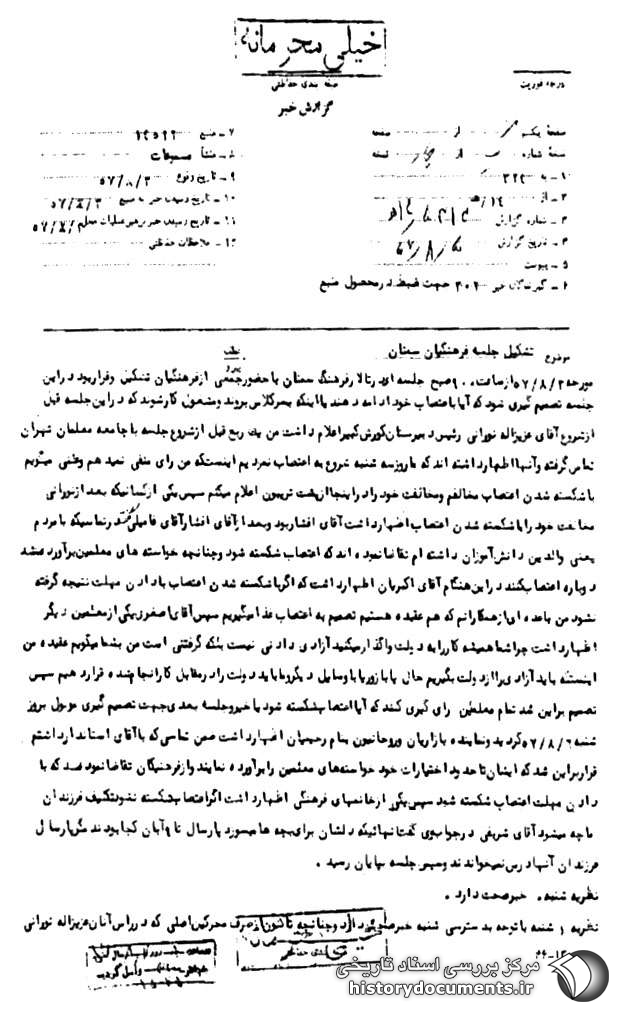 خیلی محرمانه
طبقه بندی حفاظتی
گزارش خبر
درجه فوریت
صفحه یکم از صفحه
صفحه شماره از نسخه
۱ - به ۳۲۲
۲ - از ۱۴ ه
۳ - شماره گزارش
۴ - تاریخ گزارش ۵۷/۸/
۵ - پیوست
۶ - گیرندگان خبر ۳۰۲ جهت ضبط در محصول منبع
۷ - منبع
۸ - منشأ مسموعات
۹ - تاریخ وقوع ۵۷/۸/۲
۱۰ - تاریخ رسیدن خبر به منبع ۵۷/۸/۲
۱۱ - تاریخ رسیدن خبر برهبر عملیات معلم ۵۷/۸/
۱۲ - ملاحظات حفاظتی
موضوع تشکیل جلسه فرهنگیان سمنان
مورخه ۵۷/۸/۲ از ساعت ۰۹۰۰ صبح جلسه ای در تالار فرهنگ سمنان با حضور جمعی از فرهنگیان تشکیل و قرار بود در این
جلسه تصمیم گیری شود که آیا باعتصاب خود ادامه دهند یا اینکه بسر کلاس بروند و مشغول کار شوند که در این جلسه قبل
از شروع آقای عزیزاله نورانی رئیس دبیرستان کورش کبیر اعلام داشت من یک ربع قبل از شروع جلسه با جامعه معلمان تهران
تماس گرفته و آنها اظهار داشته اند که ما روز سه شنبه شروع به اعتصاب نمودیم اینستکه من رای منفی نمیدهم وقتی میگویم
با شکسته شدن اعتصاب مخالفم و مخالفت خود را در اینجا از پشت تریبون اعلام میکنم سپس یکی از کسانیکه بعد از نورانی
مخالفت خود را با شکسته شدن اعتصاب اظهار داشت آقای افشار بود و بعد از آقای افشار آقای فامیلی گفت در تماسیکه با مردم
یعنی والدین دانش آموزان داشته ام تقاضا نموده اند که اعتصاب شکسته شود و چنانچه خواسته های معلمین برآورده نشد
دوباره اعتصاب کنند در این هنگام آقای اکبریان اظهار داشت که اگر با شکسته شدن اعتصاب با دادن مهلت نتیجه گرفته
نشود من با عده ای از همکارانم که هم عقیده هستیم تصمیم به اعتصاب غذا میگیریم سپس آقای اصغری یکی از معلمین دیگر
اظهار داشت چرا شما همیشه کار را به دولت واگذار میکنید آزادی دادنی نیست بلکه گرفتنی است من بشما میگویم عقیده من
اینستکه باید آزادی را از دولت بگیریم حال یا با زور یا با وسایل دیگر و ما باید دولت را در مقابل کار انجام شده قرار دهیم سپس
تصمیم بر این شد تمام معلمین رای گیری کنند که آیا اعتصاب شکسته شود یا خیر و جلسه بعدی جهت تصمیم گیری موکول بروز
شنبه ۵۷/۸/۶ گردید و نماینده بازاریان و روحانیون بنام رحیمیان اظهار داشت ضمن تماسی که با آقای استاندار داشتم
قرار بر این شد که ایشان تا حدود اختیارات خود خواسته های معلمین را برآورده نمایند و از فرهنگیان تقاضا نمودند که با
دادن مهلت اعتصاب شکسته شود سپس یکی از خانمهای فرهنگی اظهار داشت اگر اعتصاب شکسته نشود تکلیف فرزندان
ما چه میشود آقای شریفی در جواب وی گفت آنهائیکه دلشان برای بچه ها میسوزد پارسال تا ۹ آبان کجا بودند مگر پارسال
فرزندان آنها درس نمیخواندند و سپس جلسه بپایان رسید .
نظریه شنبه . خبر صحت دارد .
نظریه ۱ شنبه با توجه به دسترسی شنبه خبر صحت دارد و چنانچه تاکنون از طرف محرکین اصلی که در راس آنان عزیزاله نورانی
مرکز بررسی اسناد تاریخی
historydocuments.ir